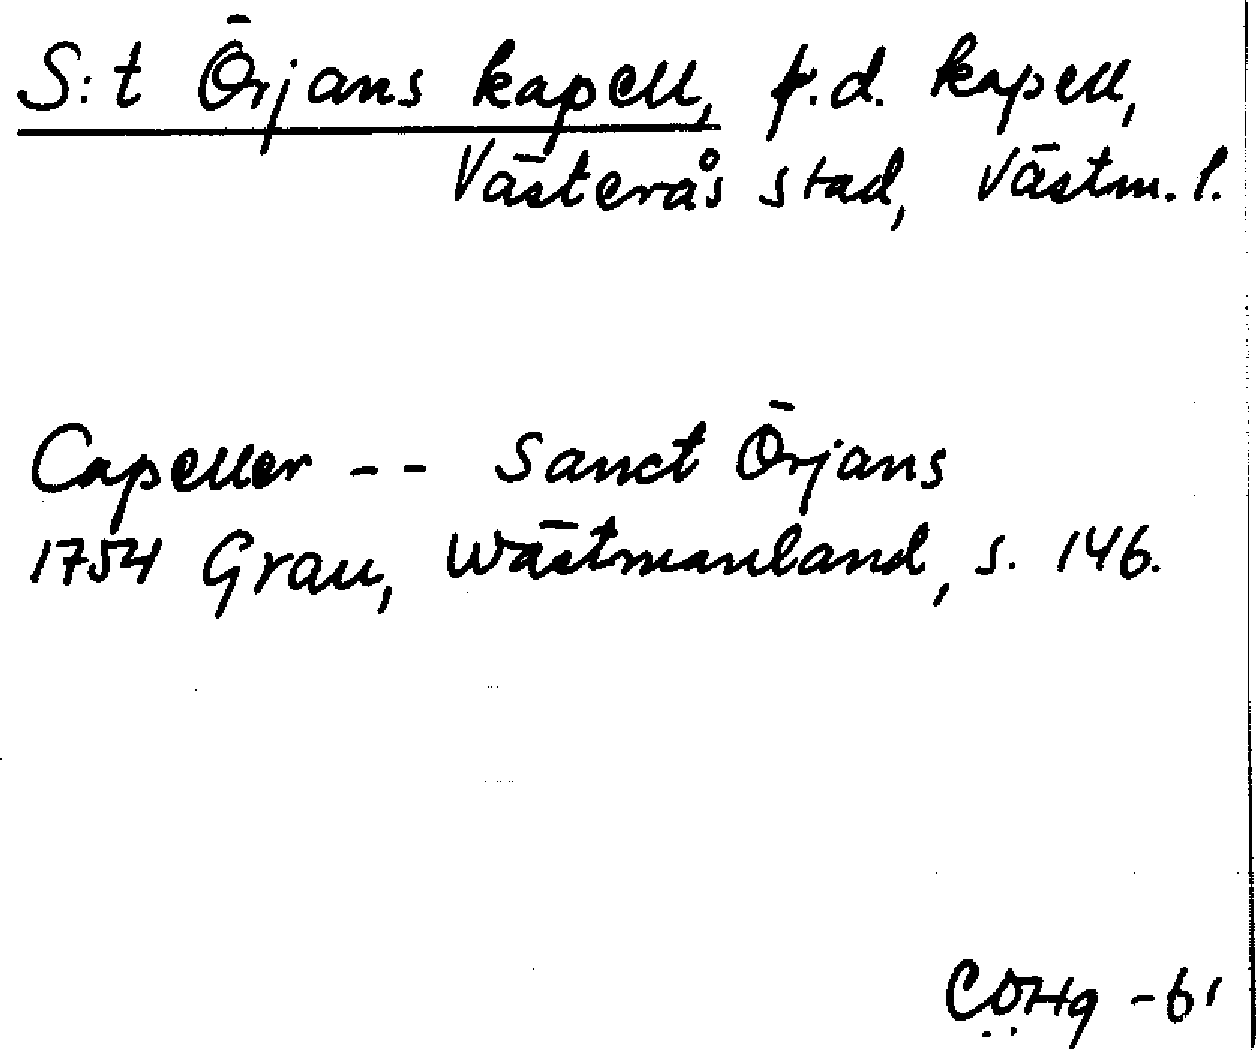 S:t Örjans kapell, f.d. kapell,
Västerås stad, Västm. l.
Capeller -- Sanct Örjans
1754 Grau, Wästmanland, s. 146.
CÖHg -61